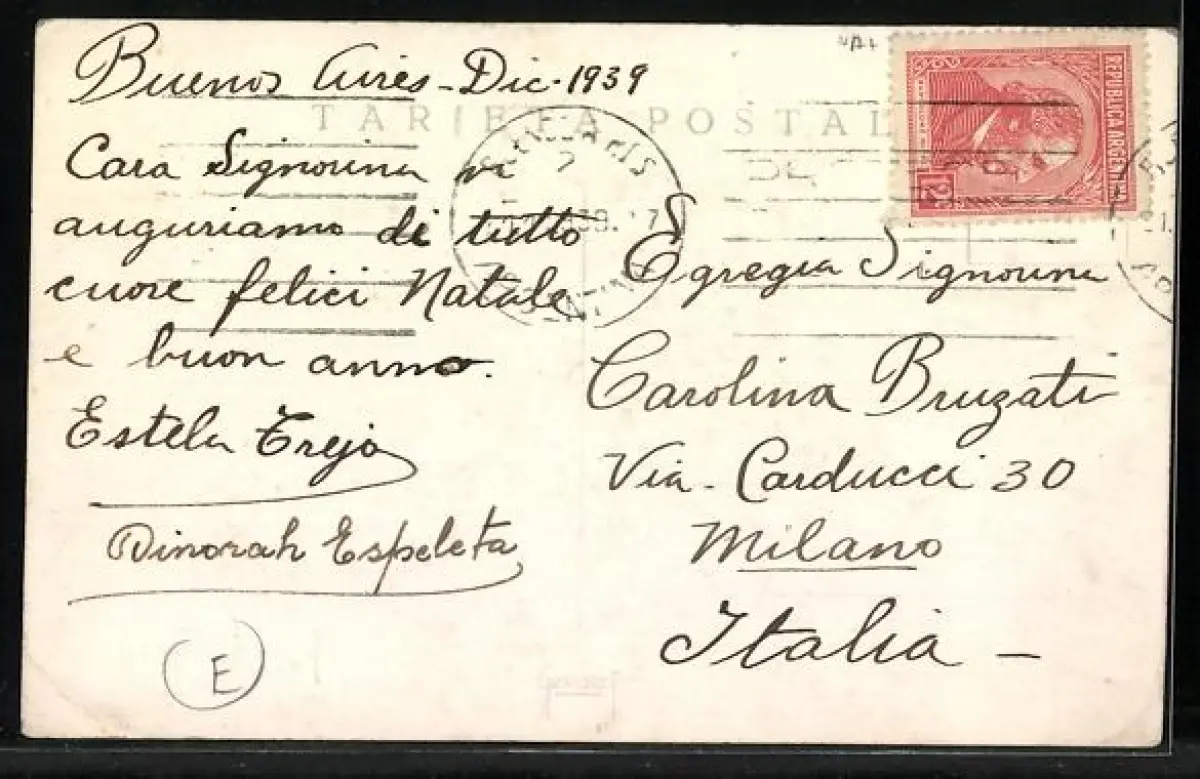 Buenos Aires - Dic - 1939
TARJETA POSTAL
Cara Signorina vi
auguriamo di tutto
cuore felici Natale
e buon anno.
Estela Trejo
Dinorah Espeleta
E
REPUBLICA ARGENTINA
Egregia Signorina
Carolina Bruzati
Via - Carducci 30
Milano
Italia -